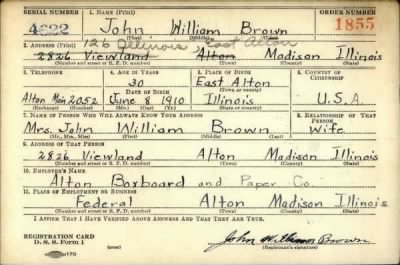 SERIAL NUMBER 1. NAME (Print) ORDER NUMBER
4622 John William Brown 1855
(First) (Middle) (Last)
2. ADDRESS (Print) 126 Illinois East Alton
2826 Viewland Alton Madison Illinois
(Number and street or R. F. D. number) (Town) (County) (State)
3. TELEPHONE 4. AGE IN YEARS 5. PLACE OF BIRTH 6. COUNTRY OF CITIZENSHIP
30 East Alton
DATE OF BIRTH
Alton Main 2052 June 8 1910 Illinois U.S.A.
(Exchange) (Number) (Mo.) (Day) (Yr.) (State or country)
7. NAME OF PERSON WHO WILL ALWAYS KNOW YOUR ADDRESS 8. RELATIONSHIP OF THAT PERSON
Mrs. John William Brown Wife
(Mr., Mrs., Miss) (First) (Middle) (Last)
9. ADDRESS OF THAT PERSON
2826 Viewland Alton Madison Illinois
(Number and street or R. F. D. number) (Town) (County) (State)
10. EMPLOYER'S NAME
Alton Boxboard and Paper Co.
11. PLACE OF EMPLOYMENT OR BUSINESS
Federal Alton Madison Illinois
(Number and street or R. F. D. number) (Town) (County) (State)
I AFFIRM THAT I HAVE VERIFIED ABOVE ANSWERS AND THAT THEY ARE TRUE.
REGISTRATION CARD
D. S. S. Form 1 John William Brown
(Registrant's signature)